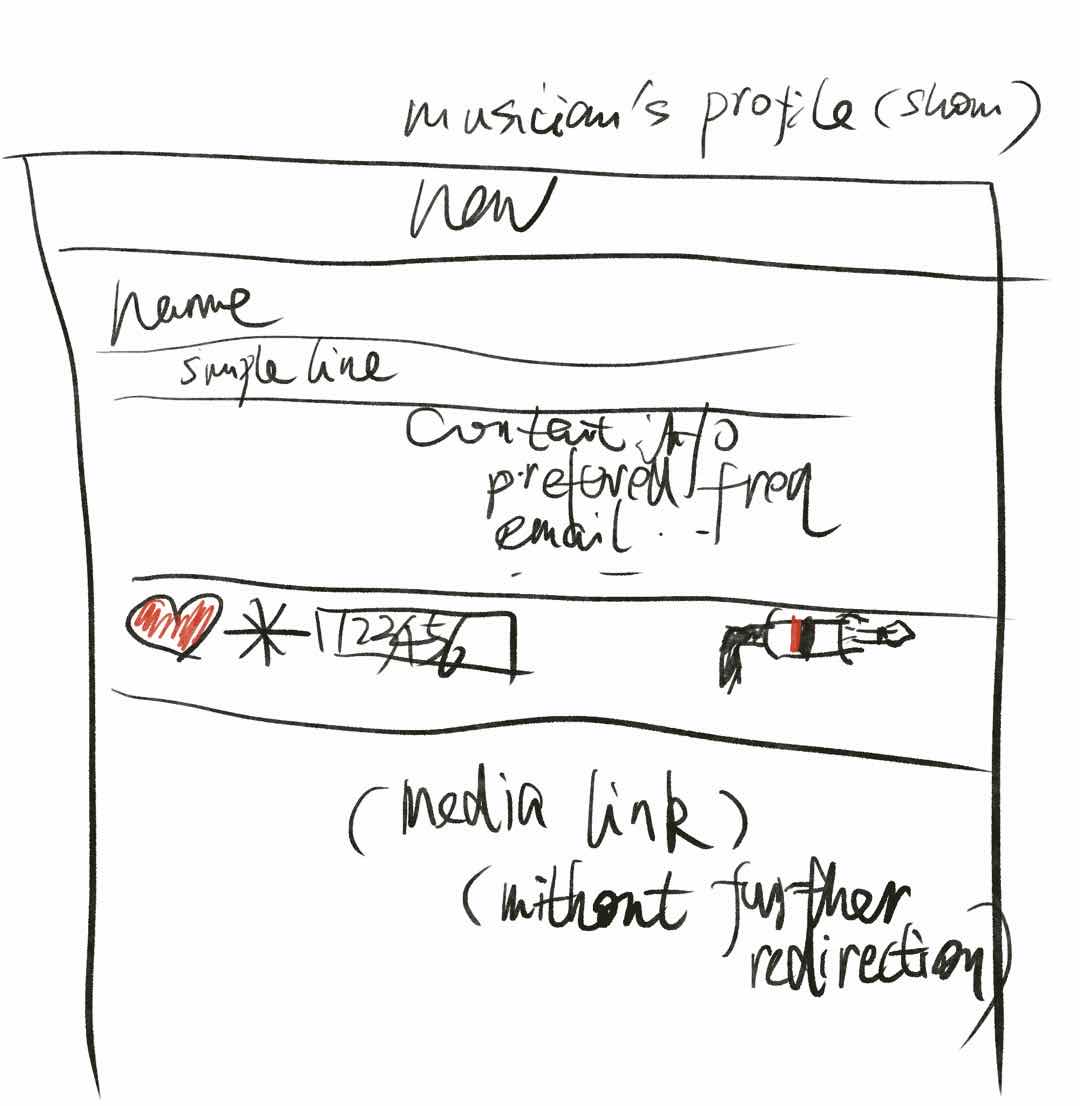 musician's profile (show)
nav
name
simple line
Contact info
prefered freq
email . -
123456
(media link)
(without further
redirection)